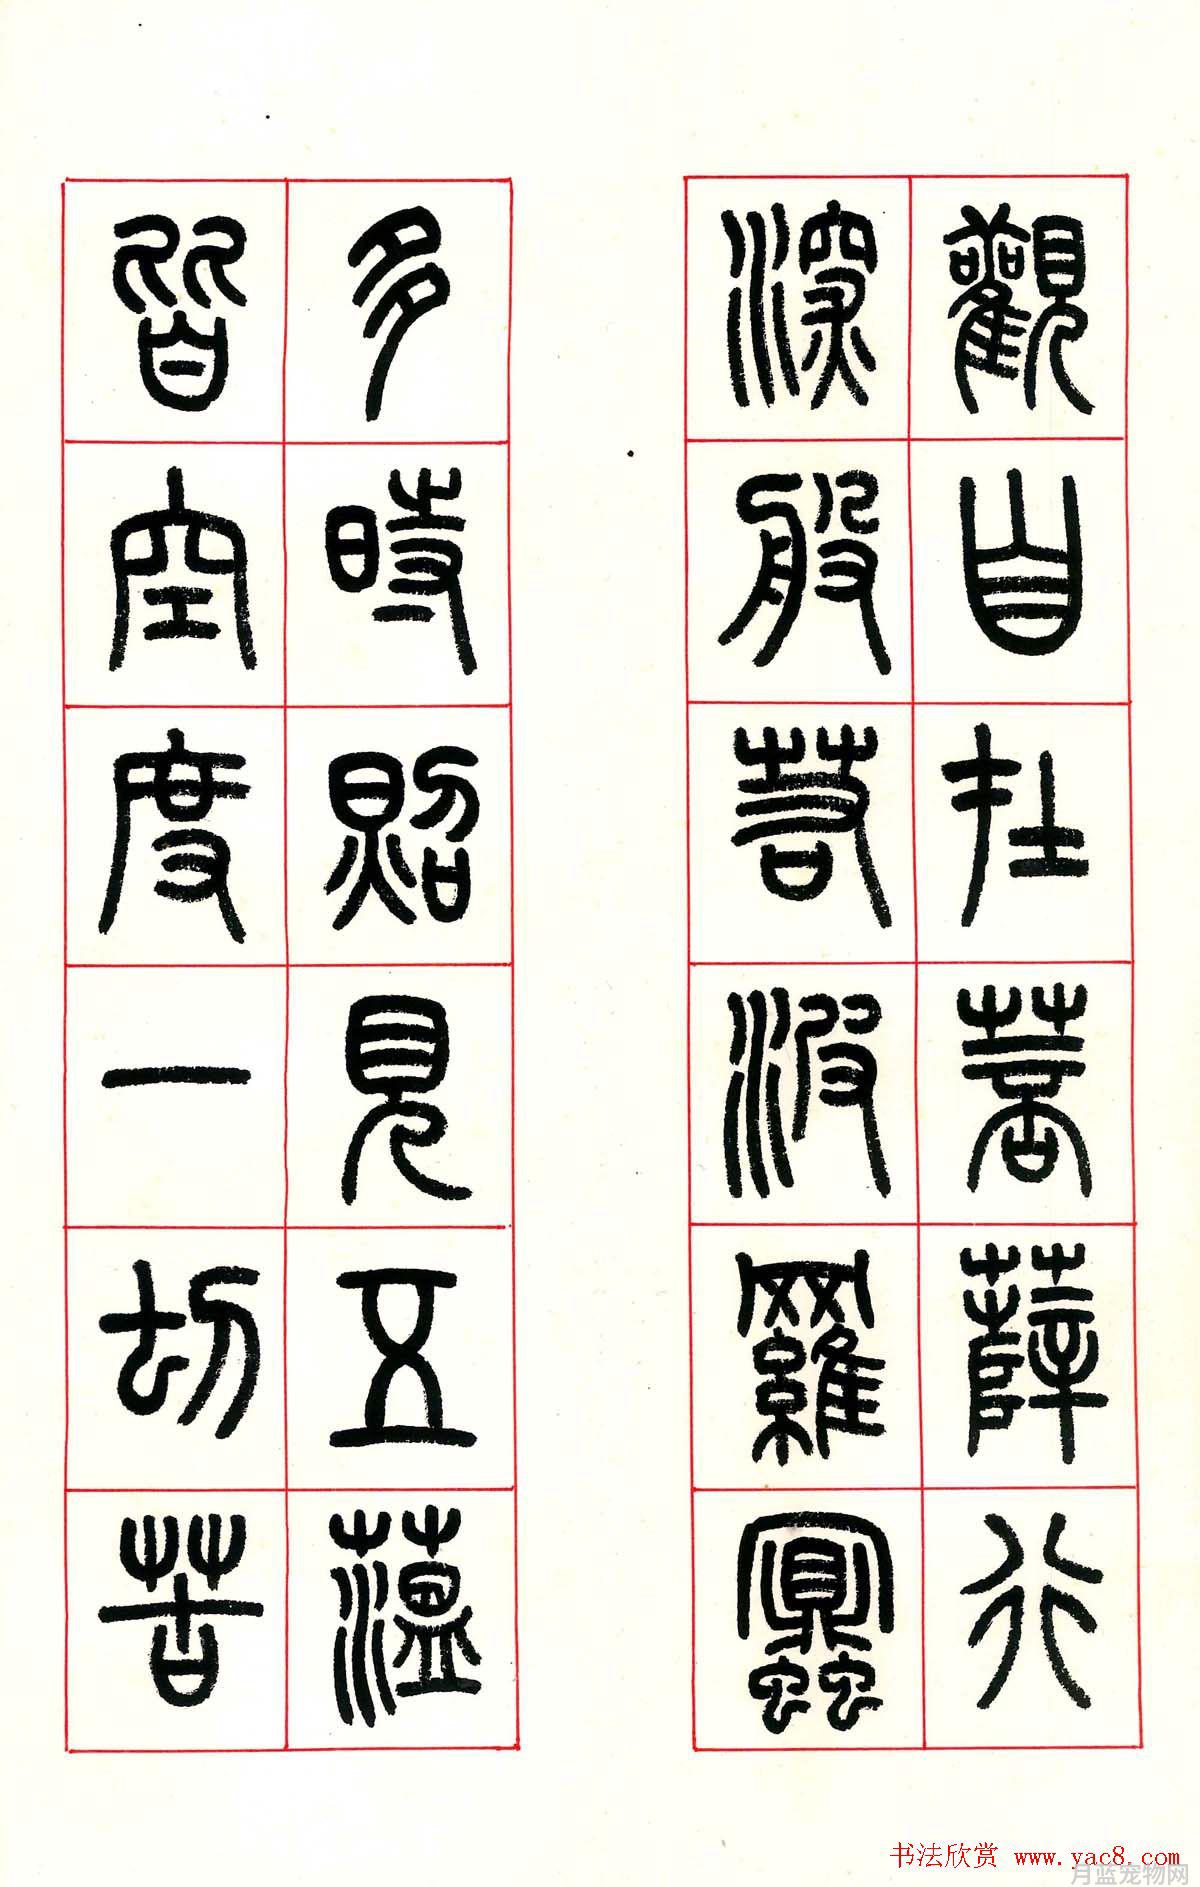 觀自在菩薩行
深般若波羅蜜
多時照見五薀
皆空度一切苦
书法欣赏 www.yac8.com
月蓝宠物网